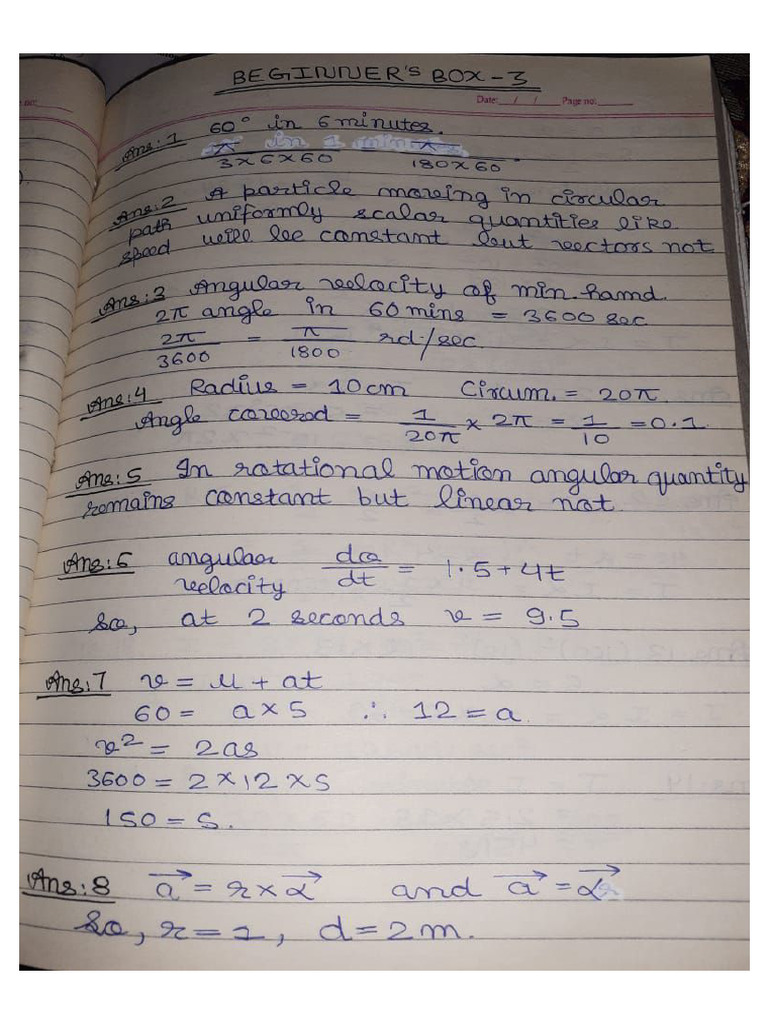 BEGINNER'S BOX-3
Date: __/__/__ Page no: ______
Ans:1 60° in 6 minutes.
π in 1 min π
3×6×60 180×60
Ans:2 A particle moving in circular
path uniformly scalar quantities like
speed will be constant but vectors not
Ans:3 Angular velocity of min. hand.
2π angle in 60 mins = 3600 sec
2π/3600 = π/1800 rd/sec
Ans:4 Radius = 10 cm Circum. = 20π.
Angle covered = 1/20π × 2π = 1/10 = 0.1
Ans:5 In rotational motion angular quantity
remains constant but linear not.
Ans:6 angular dθ/dt = 1.5+4t
velocity
so, at 2 seconds v = 9.5
Ans:7 v = u + at
60 = a × 5 ∴ 12 = a.
v² = 2as
3600 = 2×12×s
150 = s.
Ans:8 a⃗ = r × α⃗ and a⃗ = α⃗
so, r = 1, d = 2m.